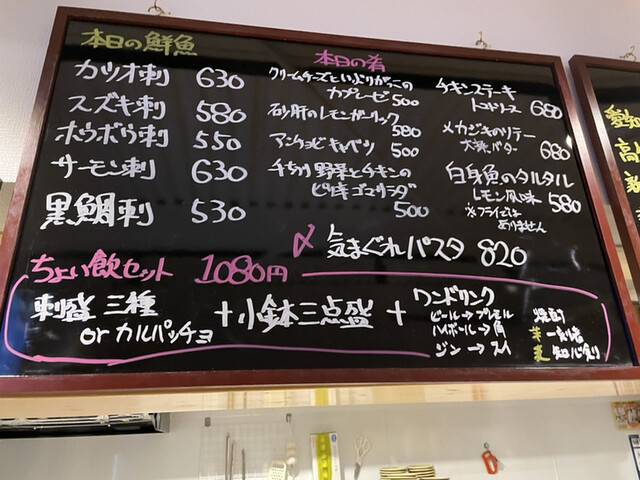 本日の鮮魚
カツオ刺 630
スズキ刺 580
ホウボウ刺 550
サーモン刺 630
黒鯛刺 530
本日の肴
クリームチーズといぶりがっこの
カプレーゼ 500
砂肝のレモンガーリック
580
アンチョビキャベツ
500
チギリ野菜とチキンの
ピリ辛ゴマサラダ
500
チキンステーキ
トマトソース 680
メカジキのソテー
大葉バター 680
白身魚のタルタル
レモン風味 580
※フライではありません
〆 気まぐれパスタ 820
ちょい飲セット 1080円
刺盛 三種
or カルパッチョ
+ 小鉢三点盛 +
ワンドリンク
ビール→プレモル
ハイボール→角
ジン→スイ
焼酎
芋 一刻者
麦 知心剣
愛知
高